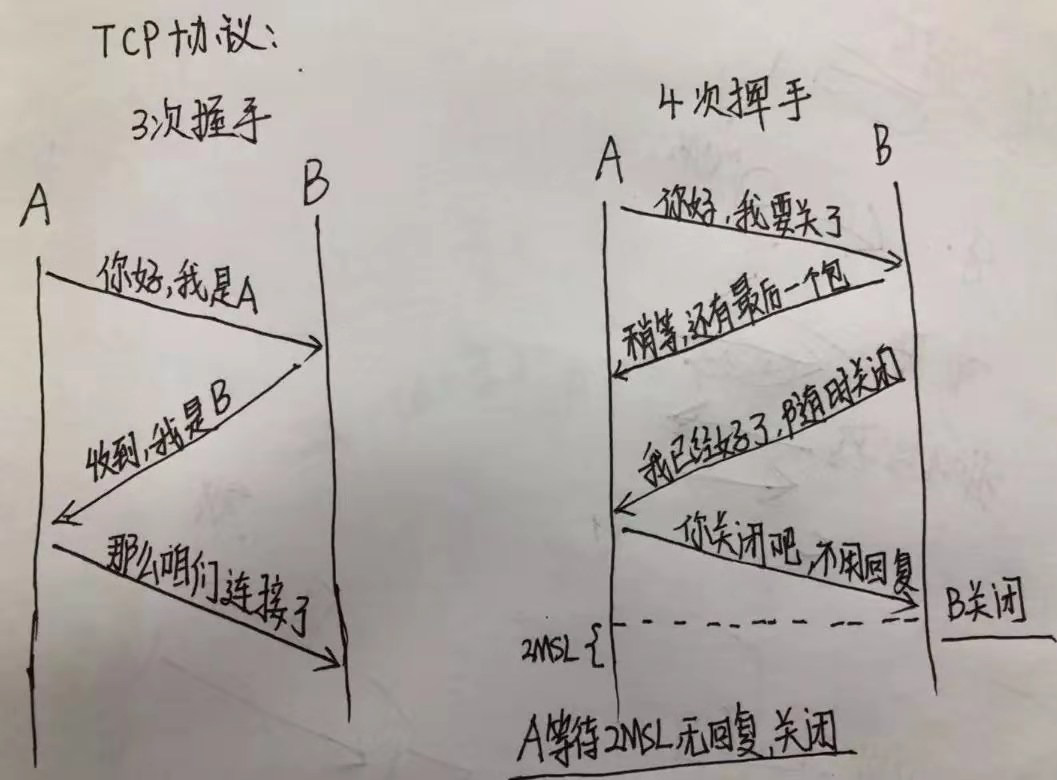 TCP协议:
3次握手
A
B
你好,我是A
收到,我是B
那么咱们连接了
4次挥手
A
B
你好,我要关了
稍等,还有最后一个包
我已经好了,随时关闭
你关闭吧,不用回复
B关闭
2MSL{
A等待2MSL无回复,关闭